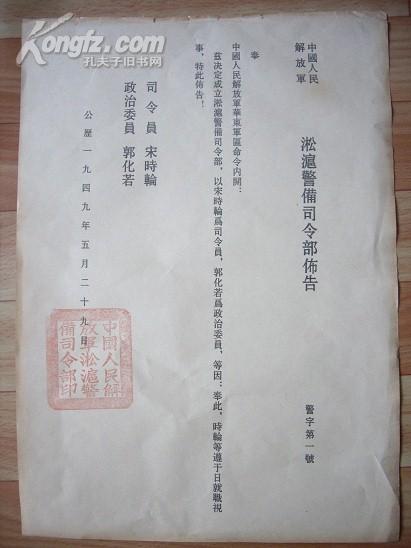 Kongfz.com
孔夫子旧书网
中國人民
解放軍
淞滬警備司令部佈告
警字第一號
奉
中國人民解放軍華東軍區命令內開:
茲決定成立淞滬警備司令部,以宋時輪爲司令員,郭化若爲政治委員,等因;奉此,時輪等遵于日就職視
事,特此佈告!
司令員 宋時輪
政治委員 郭化若
公歷一九四九年五月二十九日
中國人民解
放軍淞滬警
備司令部印